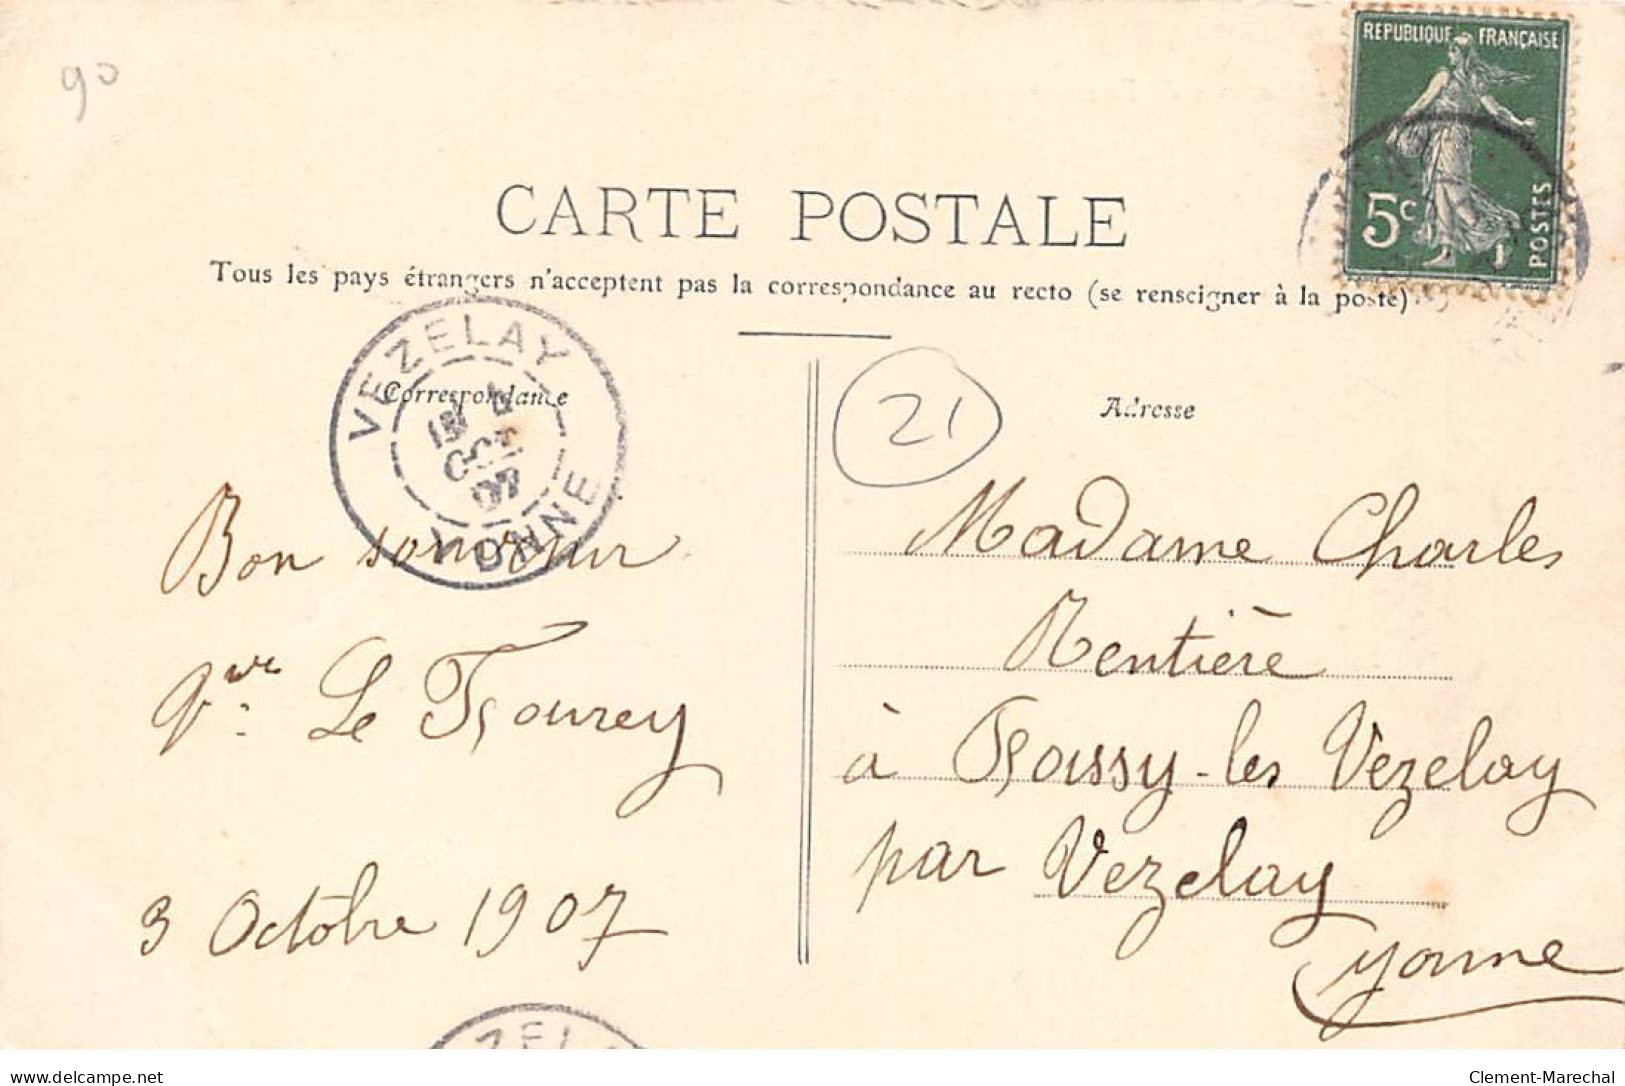 90
REPUBLIQUE FRANÇAISE
5c
POSTES
CARTE POSTALE
Tous les pays étrangers n'acceptent pas la correspondance au recto (se renseigner à la poste)
VEZELAY
4
OCT
07
YONNE
Correspondance
21
Adresse
Bon
Le
3 Octobre 1907
Madame Charles
Rentière
à -les Vezelay
par Vezelay
Yonne
ZEL
delcampe.net
Clement-Marechal